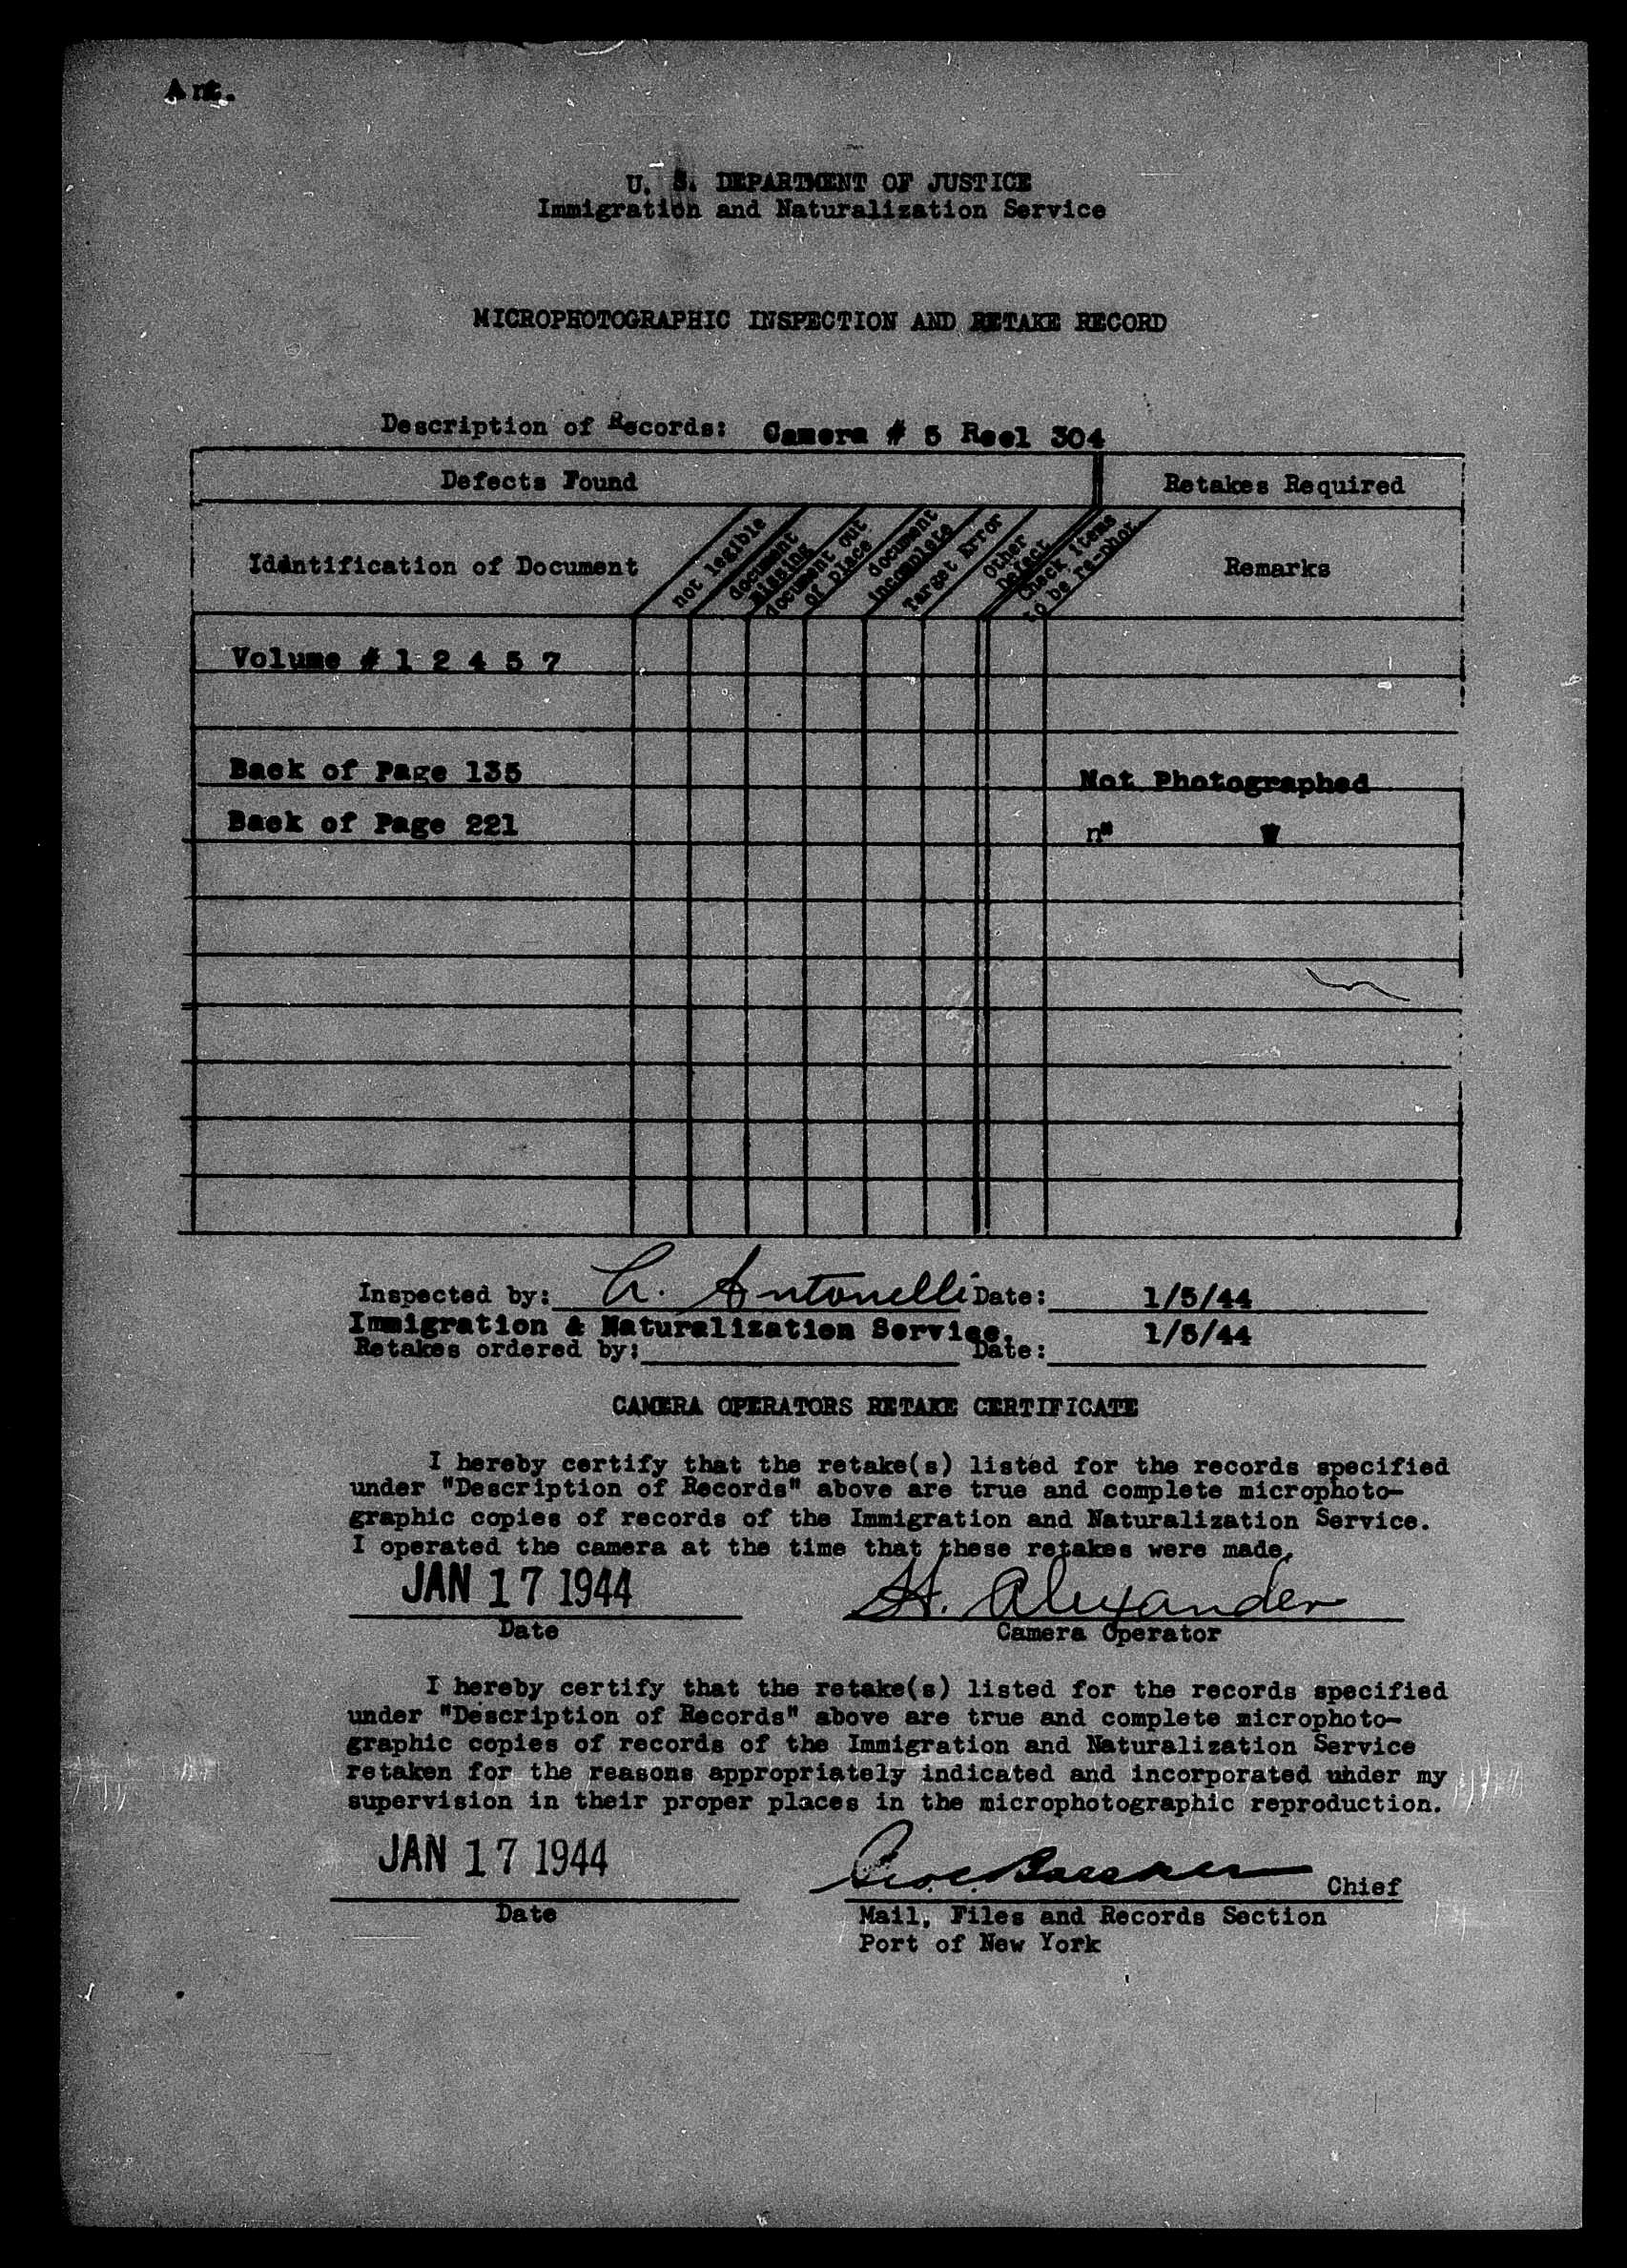 Ant.
U. S. DEPARTMENT OF JUSTICE
Immigration and Naturalization Service
MICROPHOTOGRAPHIC INSPECTION AND RETAKE RECORD
Description of Records: Camera # 5 Reel 304
Defects Found
Retakes Required
Identification of Document
not legible
document missing
document out of place
document incomplete
Target Error
Other Defect
Check items to be re-phot.
Remarks
Volume # 1 2 4 5 7
Back of Page 135 Not Photographed
Back of Page 221 n" "
Inspected by: A. Antonelli Date: 1/5/44
Immigration & Naturalization Service. 1/5/44
Retakes ordered by: Date:
CAMERA OPERATORS RETAKE CERTIFICATE
I hereby certify that the retake(s) listed for the records specified
under "Description of Records" above are true and complete microphoto-
graphic copies of records of the Immigration and Naturalization Service.
I operated the camera at the time that these retakes were made.
JAN 17 1944 H. Alexander
Date Camera Operator
I hereby certify that the retake(s) listed for the records specified
under "Description of Records" above are true and complete microphoto-
graphic copies of records of the Immigration and Naturalization Service
retaken for the reasons appropriately indicated and incorporated under my
supervision in their proper places in the microphotographic reproduction.
JAN 17 1944 Chief
Date Mail, Files and Records Section
Port of New York